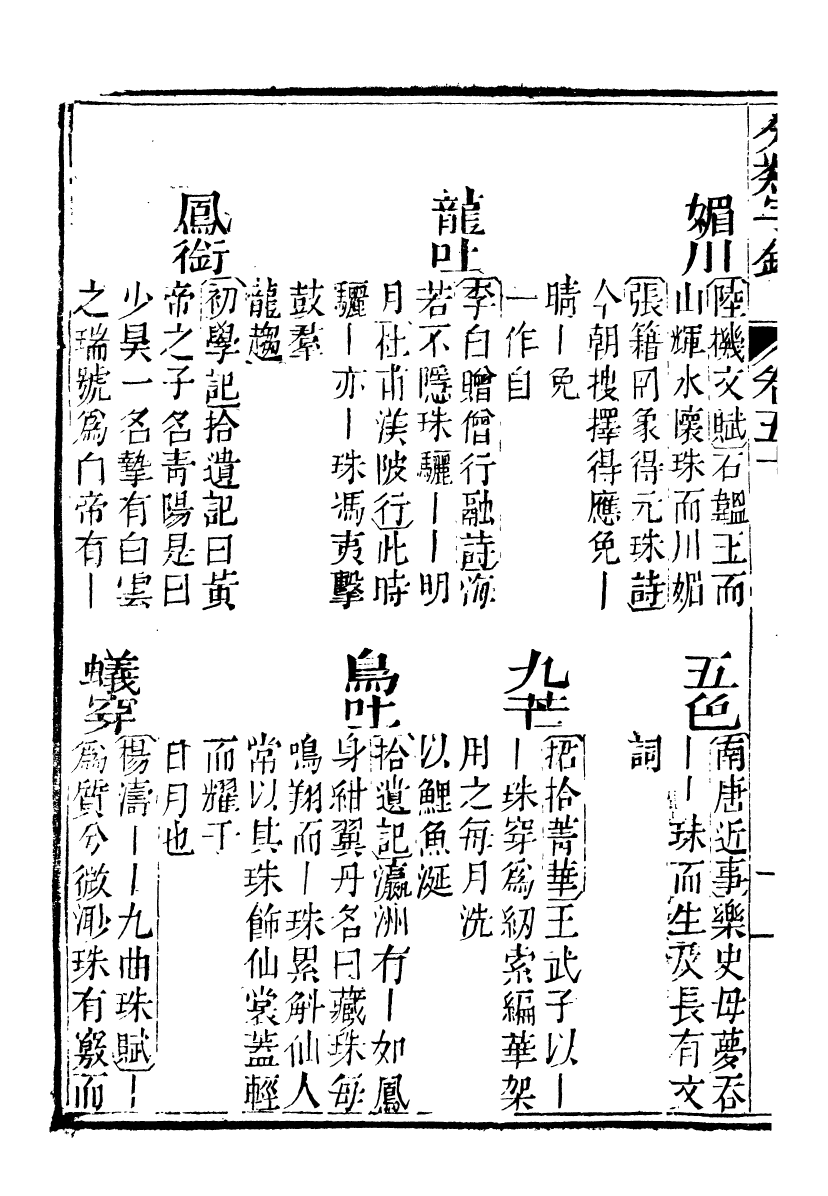 分類字錦
卷五十
媚川
陸機文賦石韞玉而
山輝水懷珠而川媚
張籍罔象得元珠詩
今朝搜擇得應免丨
晴丨免
一作自
龍吐
李白贈僧行融詩海
若不隱珠驪丨丨明
月杜甫渼陂行此時
驪丨亦丨珠馮夷擊
鼓羣
龍趨
鳳銜
初學記拾遺記曰黃
帝之子名青陽是曰
少昊一名摯有白雲
之瑞號爲白帝有丨
五色
南唐近事樂史母夢吞
丨丨珠而生及長有文
詞
九芒
捃拾菁華王武子以丨
丨珠穿爲紉索編華架
用之每月洗
以鯉魚涎
鳥吐
拾遺記瀛洲有丨如鳳
身紺翼丹名曰藏珠每
鳴翔而丨珠累斛仙人
常以其珠飾仙裳蓋輕
而耀于
日月也
蟻穿
楊濤丨丨九曲珠賦丨
爲質兮微渺珠有竅而